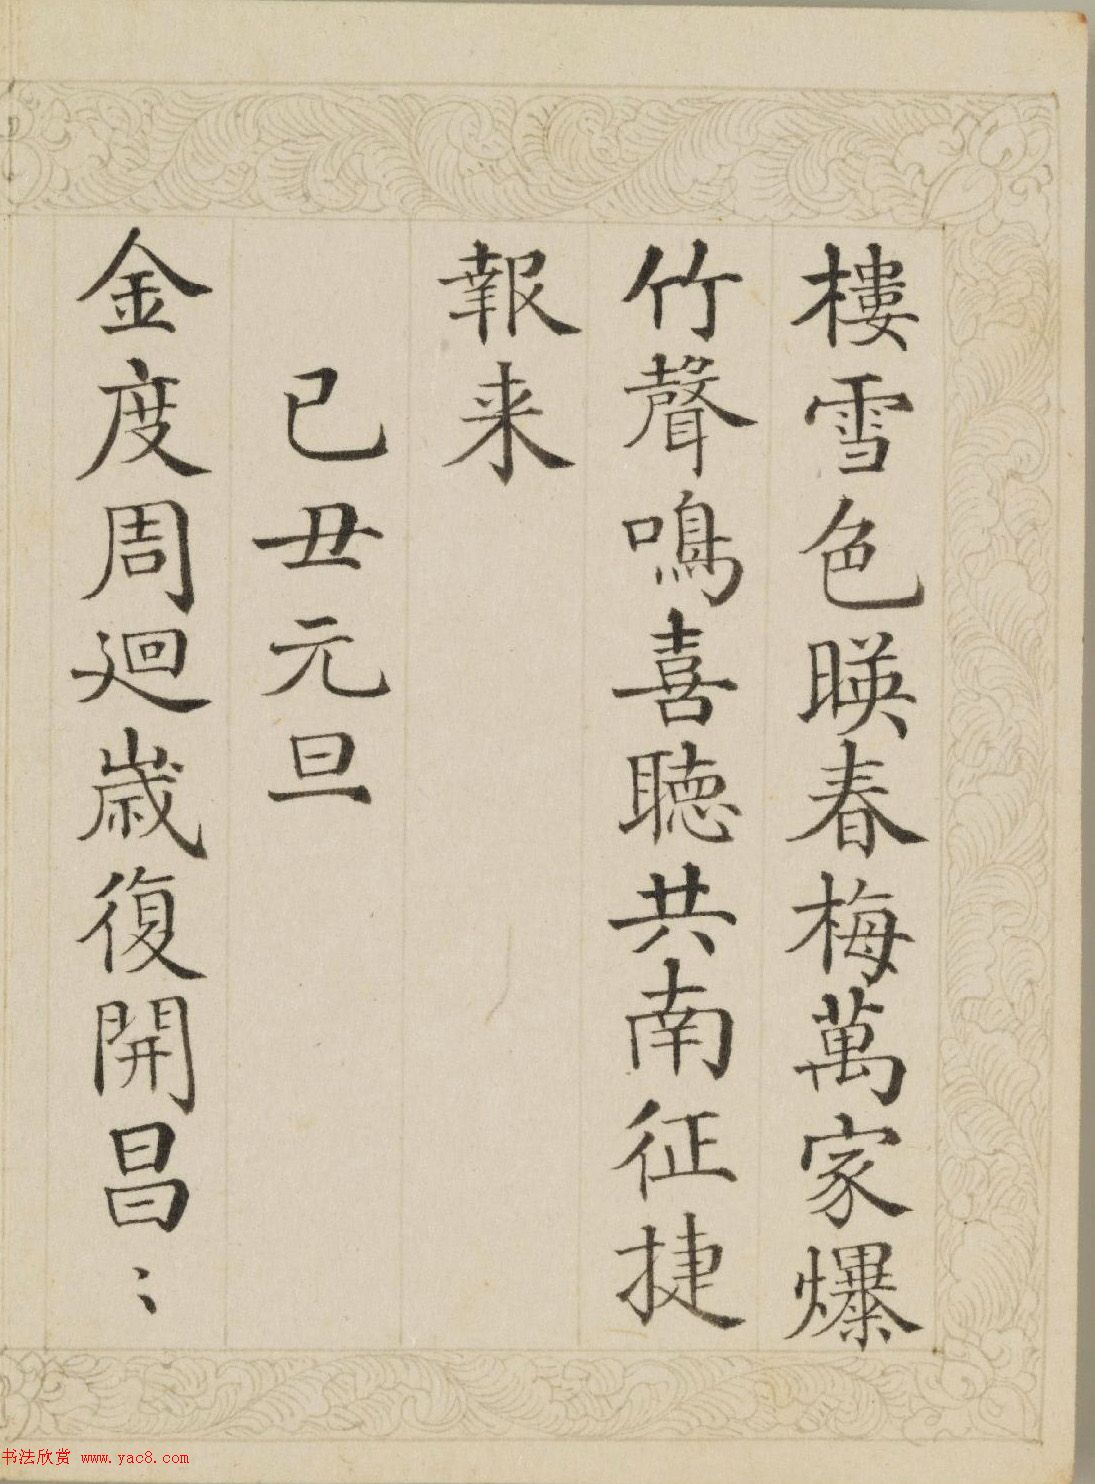 樓雪色暎春梅萬家爆
竹聲鳴喜聽共南征捷
報来
已丑元旦
金度周迴歲復開昌〻
书法欣赏 www.yac8.com